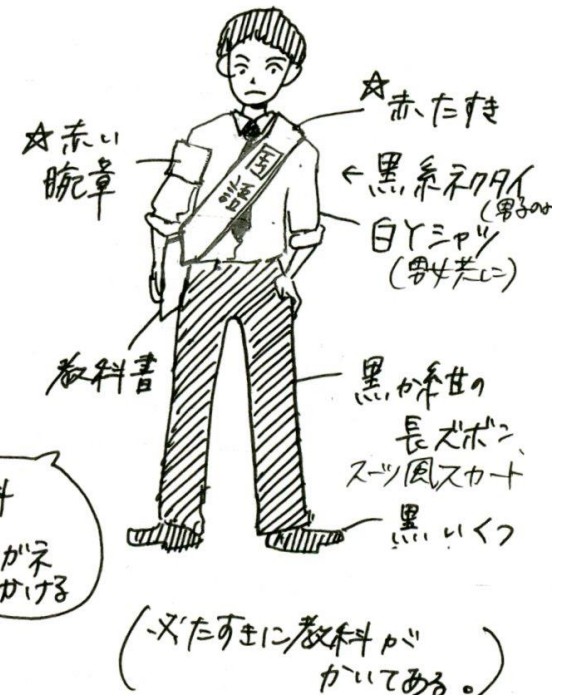 ☆赤たすき
☆赤い
腕章
国語
←黒系ネクタイ
(男子のみ
白Yシャツ
(男女共に)
教科書
黒か紺の
長ズボン、
スーツ風スカート
黒いくつ
科
ガネ
かける
(※たすきに教科が
かいてある。)